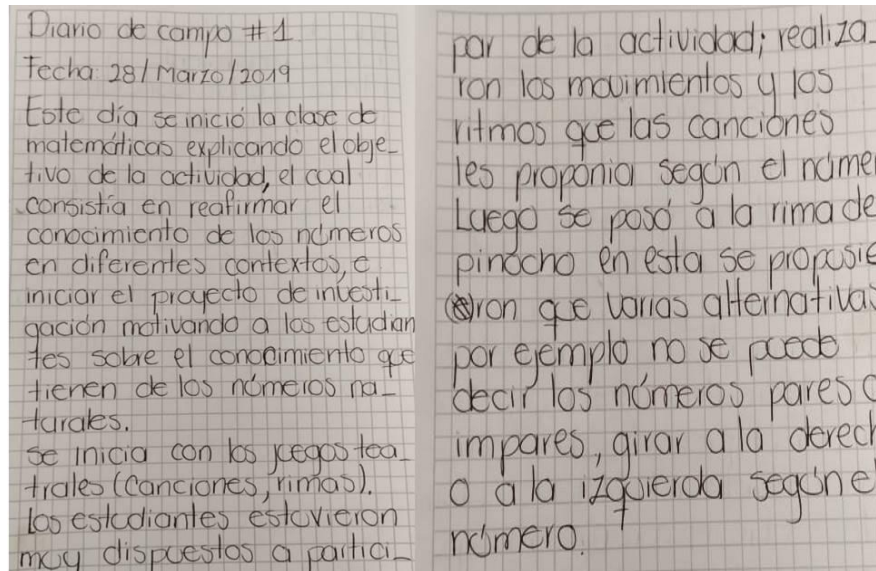 Diario de campo #1
Fecha: 28/Marzo/2019
Este día se inició la clase de
matemáticas explicando el obje-
tivo de la actividad, el cual
consistía en reafirmar el
conocimiento de los números
en diferentes contextos, e
iniciar el proyecto de investi-
gación motivando a los estudian
tes sobre el conocimiento que
tienen de los números na-
turales.
se inicia con los juegos tea-
trales (canciones, rimas).
los estudiantes estuvieron
muy dispuestos a partici-
par de la actividad; realiza-
ron los movimientos y los
ritmos que las canciones
les proponia según el númer
Luego se pasó a la rima de
pinocho en esta se propusie
ron que varias alternativas
por ejemplo no se puede
decir los números pares o
impares, girar a la derech
o a la izquierda según el
número.